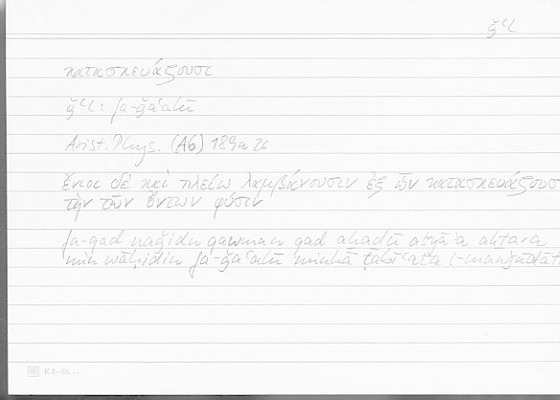 ǧʿl
κατασκευάζουσι
ǧʿl: fa-ǧaʿalū
Arist. Phys. (A6) 189a26
ἔνιοι δὲ καὶ πλείω λαμβάνουσιν ἐξ ὧν κατασκευάζουσι
τὴν τῶν ὄντων φύσιν
fa-qad naǧidu qawman qad aḫadū ašyāʾa aktara
min wāḥidin fa-ǧaʿalū minhā ṭabīʿata l-mawǧūdāt